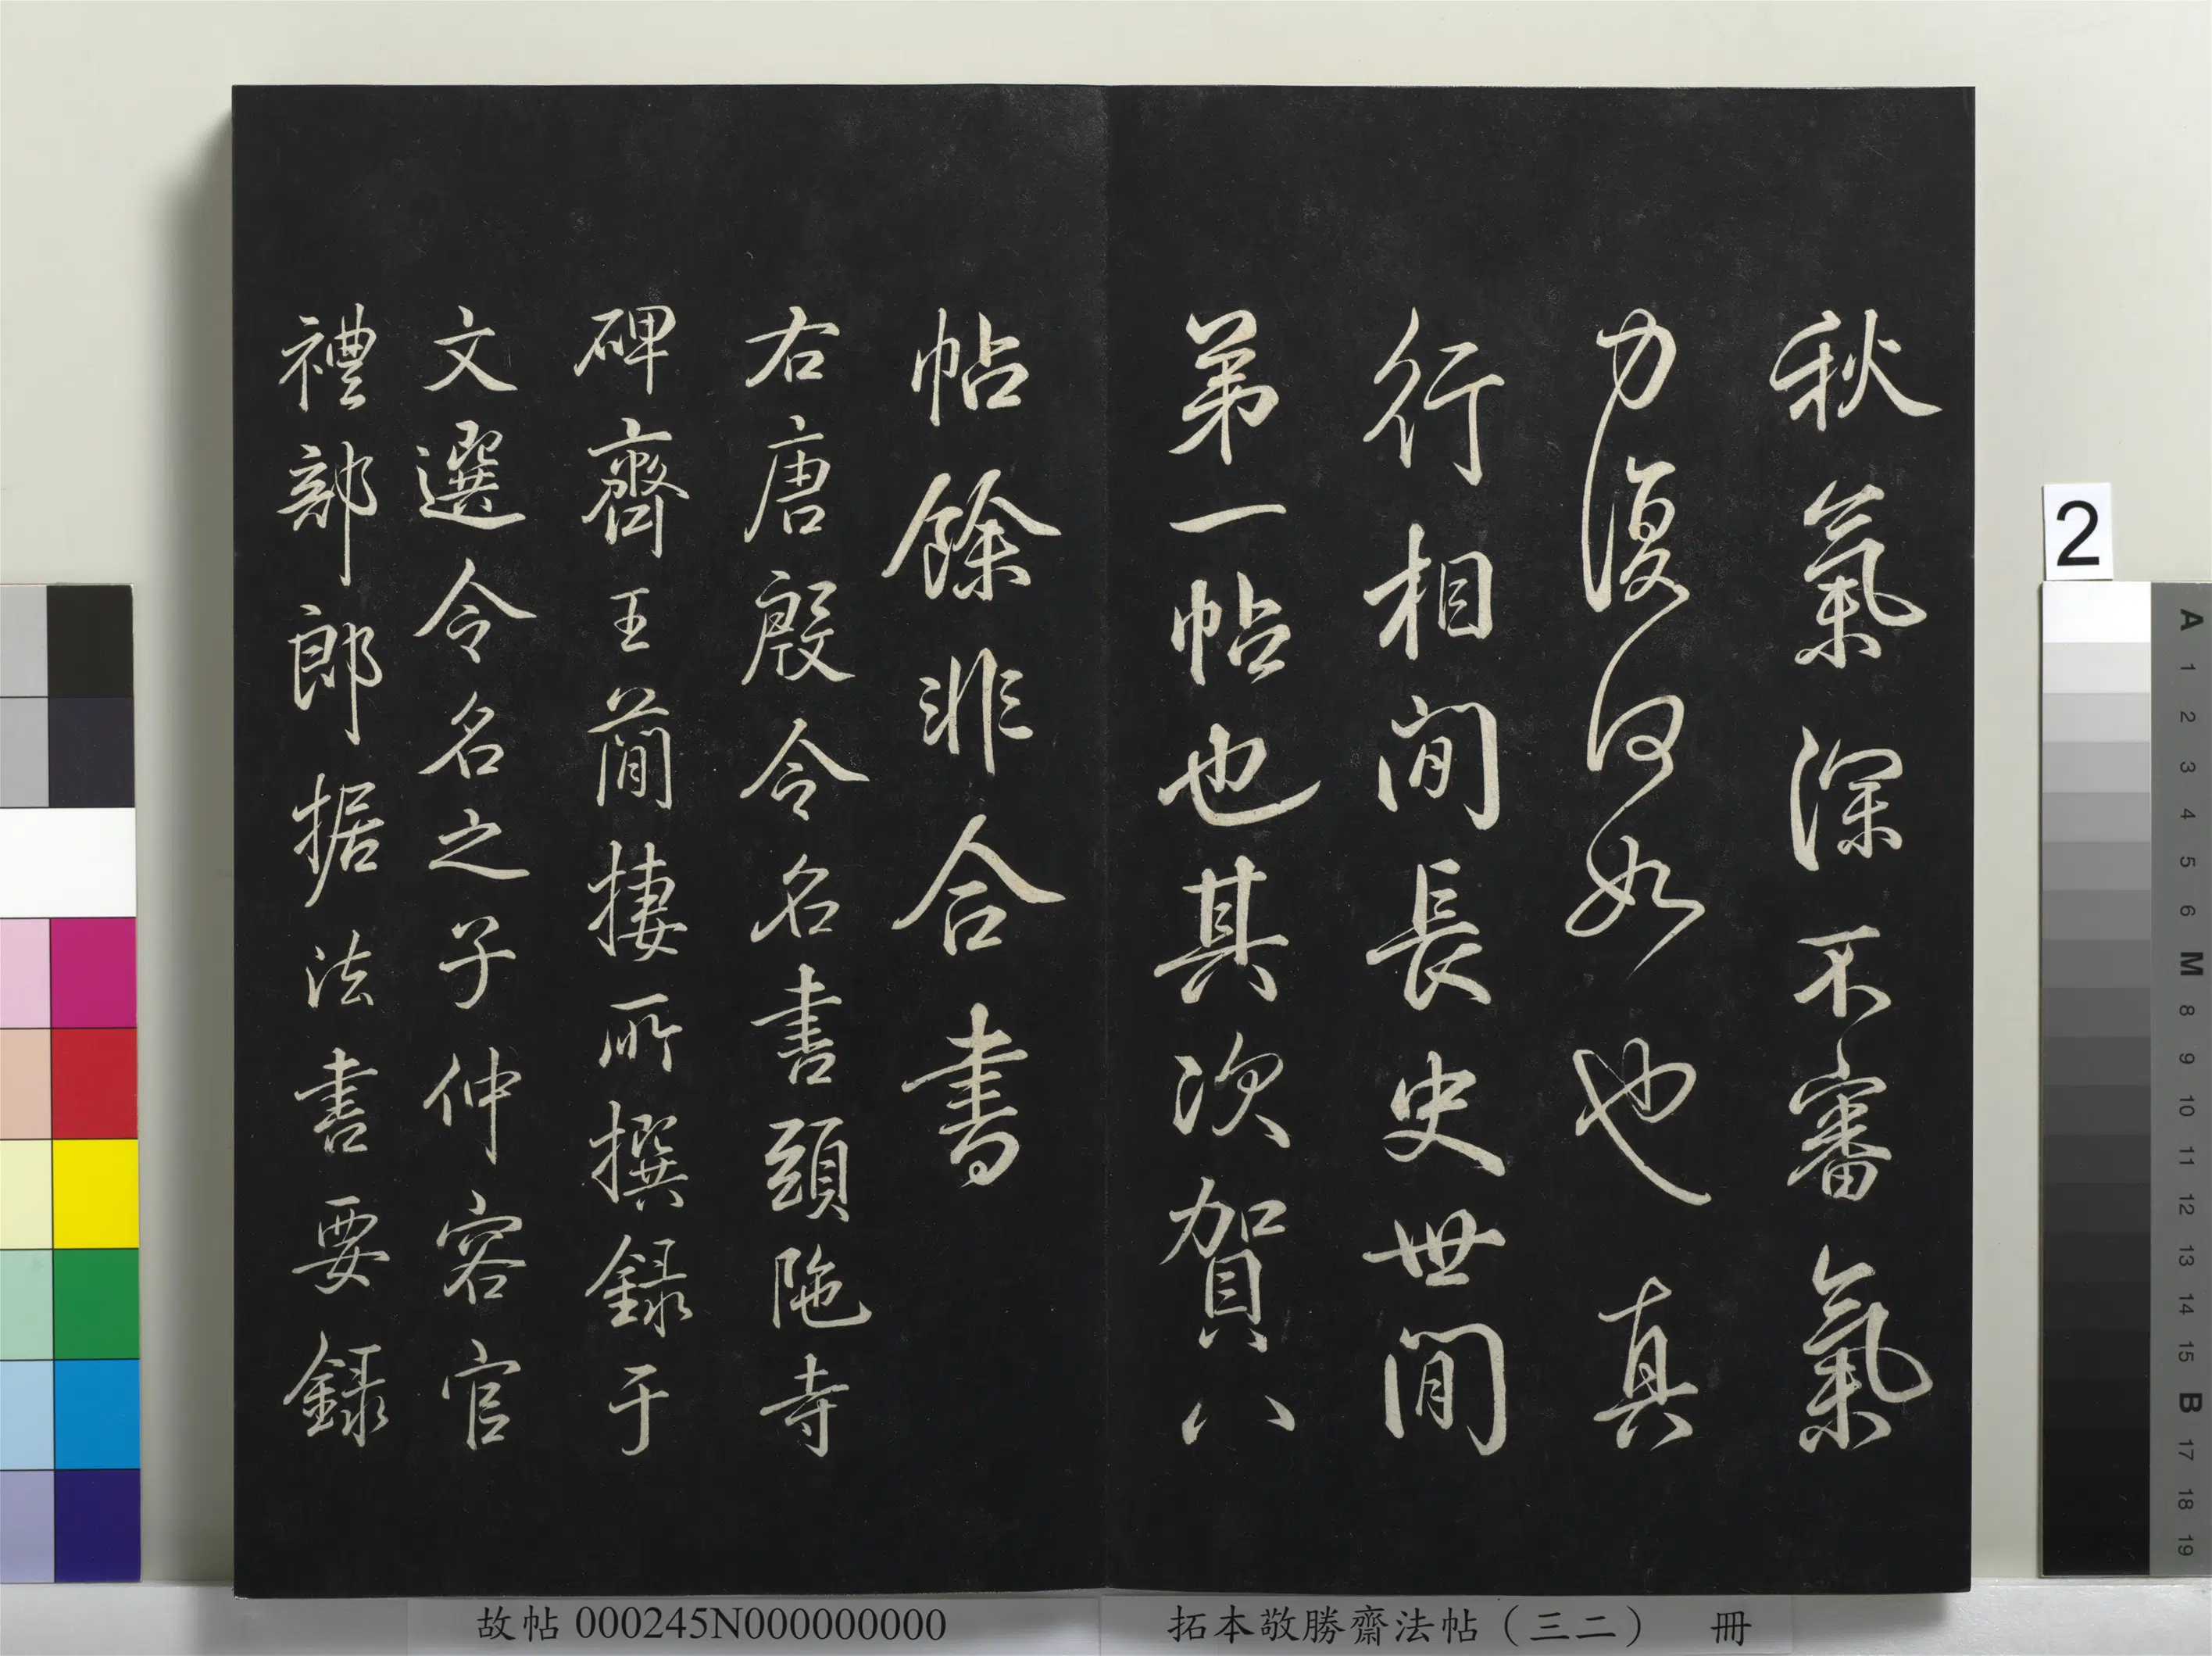 秋氣深不審氣
力復何如也真
行相間長史世間
第一帖也其次賀八
帖餘非合書
右唐殷令名書頭陁寺
碑齊王簡棲所撰録于
文選令名之子仲容官
禮部郎据法書要録
故帖 000245N000000000
拓本敬勝齋法帖（三二） 冊
2
A
1
2
3
4
5
6
M
8
9
10
11
12
13
14
15
B
17
18
19